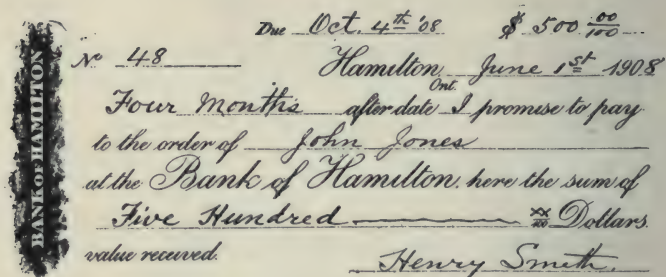 BANK OF HAMILTON
Due Oct. 4th '08 $ 500 00/100
No 48 Hamilton, Ont. June 1st 1908
Four Months after date I promise to pay
to the order of John Jones
at the Bank of Hamilton, here the sum of
Five Hundred xx/100 Dollars
value received. Henry Smith.